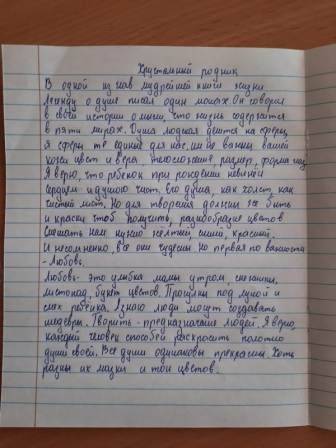 Хрустальный родник
В одной из глав мудрейшей книги жизни
Легенду о душе писал один монах. Он говорил
в своей истории о том, что жизнь содержится
в пяти мирах. Душа людская делится на сферы,
и сферы те едины для нас, им не важны вашей
кожи цвет и вера, телосложение, размер, форма
Я верю, что ребенок при рождении невинен
сердцем и душою чист, его душа, как холст, как
чистый лист. Но для творения должны же быть
и краски, чтоб получить, разнообразие цветов
Смешать нам нужно жёлтый, синий, красный.
И несомненно, все они чудесны. Но первая по важности
- Любовь.
Любовь- это улыбка мамы утром, снежинки,
листопад, букет цветов. Прогулки под луной и
смех ребёнка. Я знаю люди могут создавать
шедевры. Творить - предназначение людей. Я верю,
каждый человек способен раскрасить полотно
души своей. Все души одинаковы прекрасны. Хоть
разны их мазки и тон цветов.